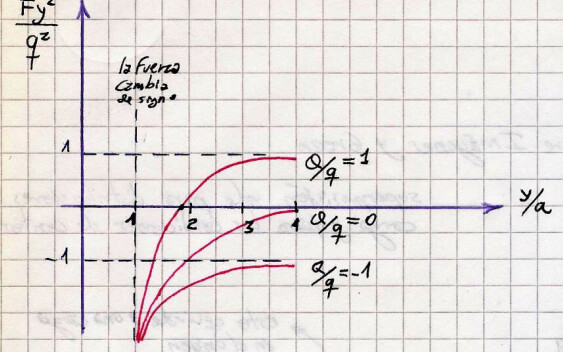 Fy²
q²
la Fuerza
Cambia
de signo
1
Q/q = 1
1 2 3 4
y/a
Q/q = 0
-1
Q/q = -1